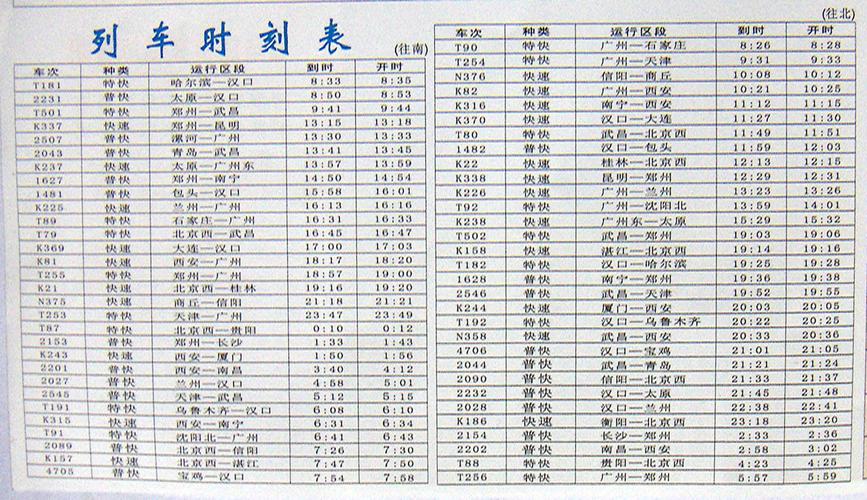 列车时刻表 (往南)
车次 种类 运行区段 到时 开时
T181 特快 哈尔滨—汉口 8:33 8:35
2231 普快 太原—汉口 8:50 8:53
T501 特快 郑州—武昌 9:41 9:44
K337 快速 郑州—昆明 13:15 13:18
2507 普快 漯河—广州 13:30 13:33
2043 普快 青岛—武昌 13:41 13:45
K237 快速 太原—广州东 13:57 13:59
1627 普快 郑州—南宁 14:50 14:54
1481 普快 包头—汉口 15:58 16:01
K225 快速 兰州—广州 16:13 16:16
T89 特快 石家庄—广州 16:31 16:33
T79 特快 北京西—武昌 16:45 16:47
K369 快速 大连—汉口 17:00 17:03
K81 快速 西安—广州 18:17 18:20
T255 特快 郑州—广州 18:57 19:00
K21 快速 北京西—桂林 19:16 19:20
N375 快速 商丘—信阳 21:18 21:21
T253 特快 天津—广州 23:47 23:49
T87 特快 北京西—贵阳 0:10 0:12
2153 普快 郑州—长沙 1:33 1:43
K243 快速 西安—厦门 1:50 1:56
2201 普快 西安—南昌 3:40 4:12
2027 普快 兰州—汉口 4:58 5:01
2545 普快 天津—武昌 5:12 5:15
T191 特快 乌鲁木齐—汉口 6:08 6:10
K315 快速 西安—南宁 6:31 6:34
T91 特快 沈阳北—广州 6:41 6:43
2089 普快 北京西—信阳 7:26 7:30
K157 快速 北京西—湛江 7:47 7:50
4705 普快 宝鸡—汉口 7:54 7:58
(往北)
车次 种类 运行区段 到时 开时
T90 特快 广州—石家庄 8:26 8:28
T254 特快 广州—天津 9:31 9:33
N376 快速 信阳—商丘 10:08 10:12
K82 快速 广州—西安 10:21 10:25
K316 快速 南宁—西安 11:12 11:15
K370 快速 汉口—大连 11:27 11:30
T80 特快 武昌—北京西 11:49 11:51
1482 普快 汉口—包头 11:59 12:03
K22 快速 桂林—北京西 12:13 12:15
K338 快速 昆明—郑州 12:29 12:31
K226 快速 广州—兰州 13:23 13:26
T92 特快 广州—沈阳北 13:59 14:01
K238 快速 广州东—太原 15:29 15:32
T502 特快 武昌—郑州 19:03 19:06
K158 快速 湛江—北京西 19:14 19:16
T182 特快 汉口—哈尔滨 19:25 19:28
1628 普快 南宁—郑州 19:36 19:38
2546 普快 武昌—天津 19:52 19:55
K244 快速 厦门—西安 20:03 20:05
T192 特快 汉口—乌鲁木齐 20:22 20:25
N358 快速 武昌—西安 20:33 20:36
4706 普快 汉口—宝鸡 21:01 21:05
2044 普快 武昌—青岛 21:21 21:24
2090 普快 信阳—北京西 21:33 21:37
2232 普快 汉口—太原 21:45 21:48
2028 普快 汉口—兰州 22:38 22:41
K186 快速 衡阳—北京西 23:18 23:20
2154 普快 长沙—郑州 2:33 2:36
2202 普快 南昌—西安 2:58 3:02
T88 特快 贵阳—北京西 4:23 4:25
T256 特快 广州—郑州 5:57 5:59